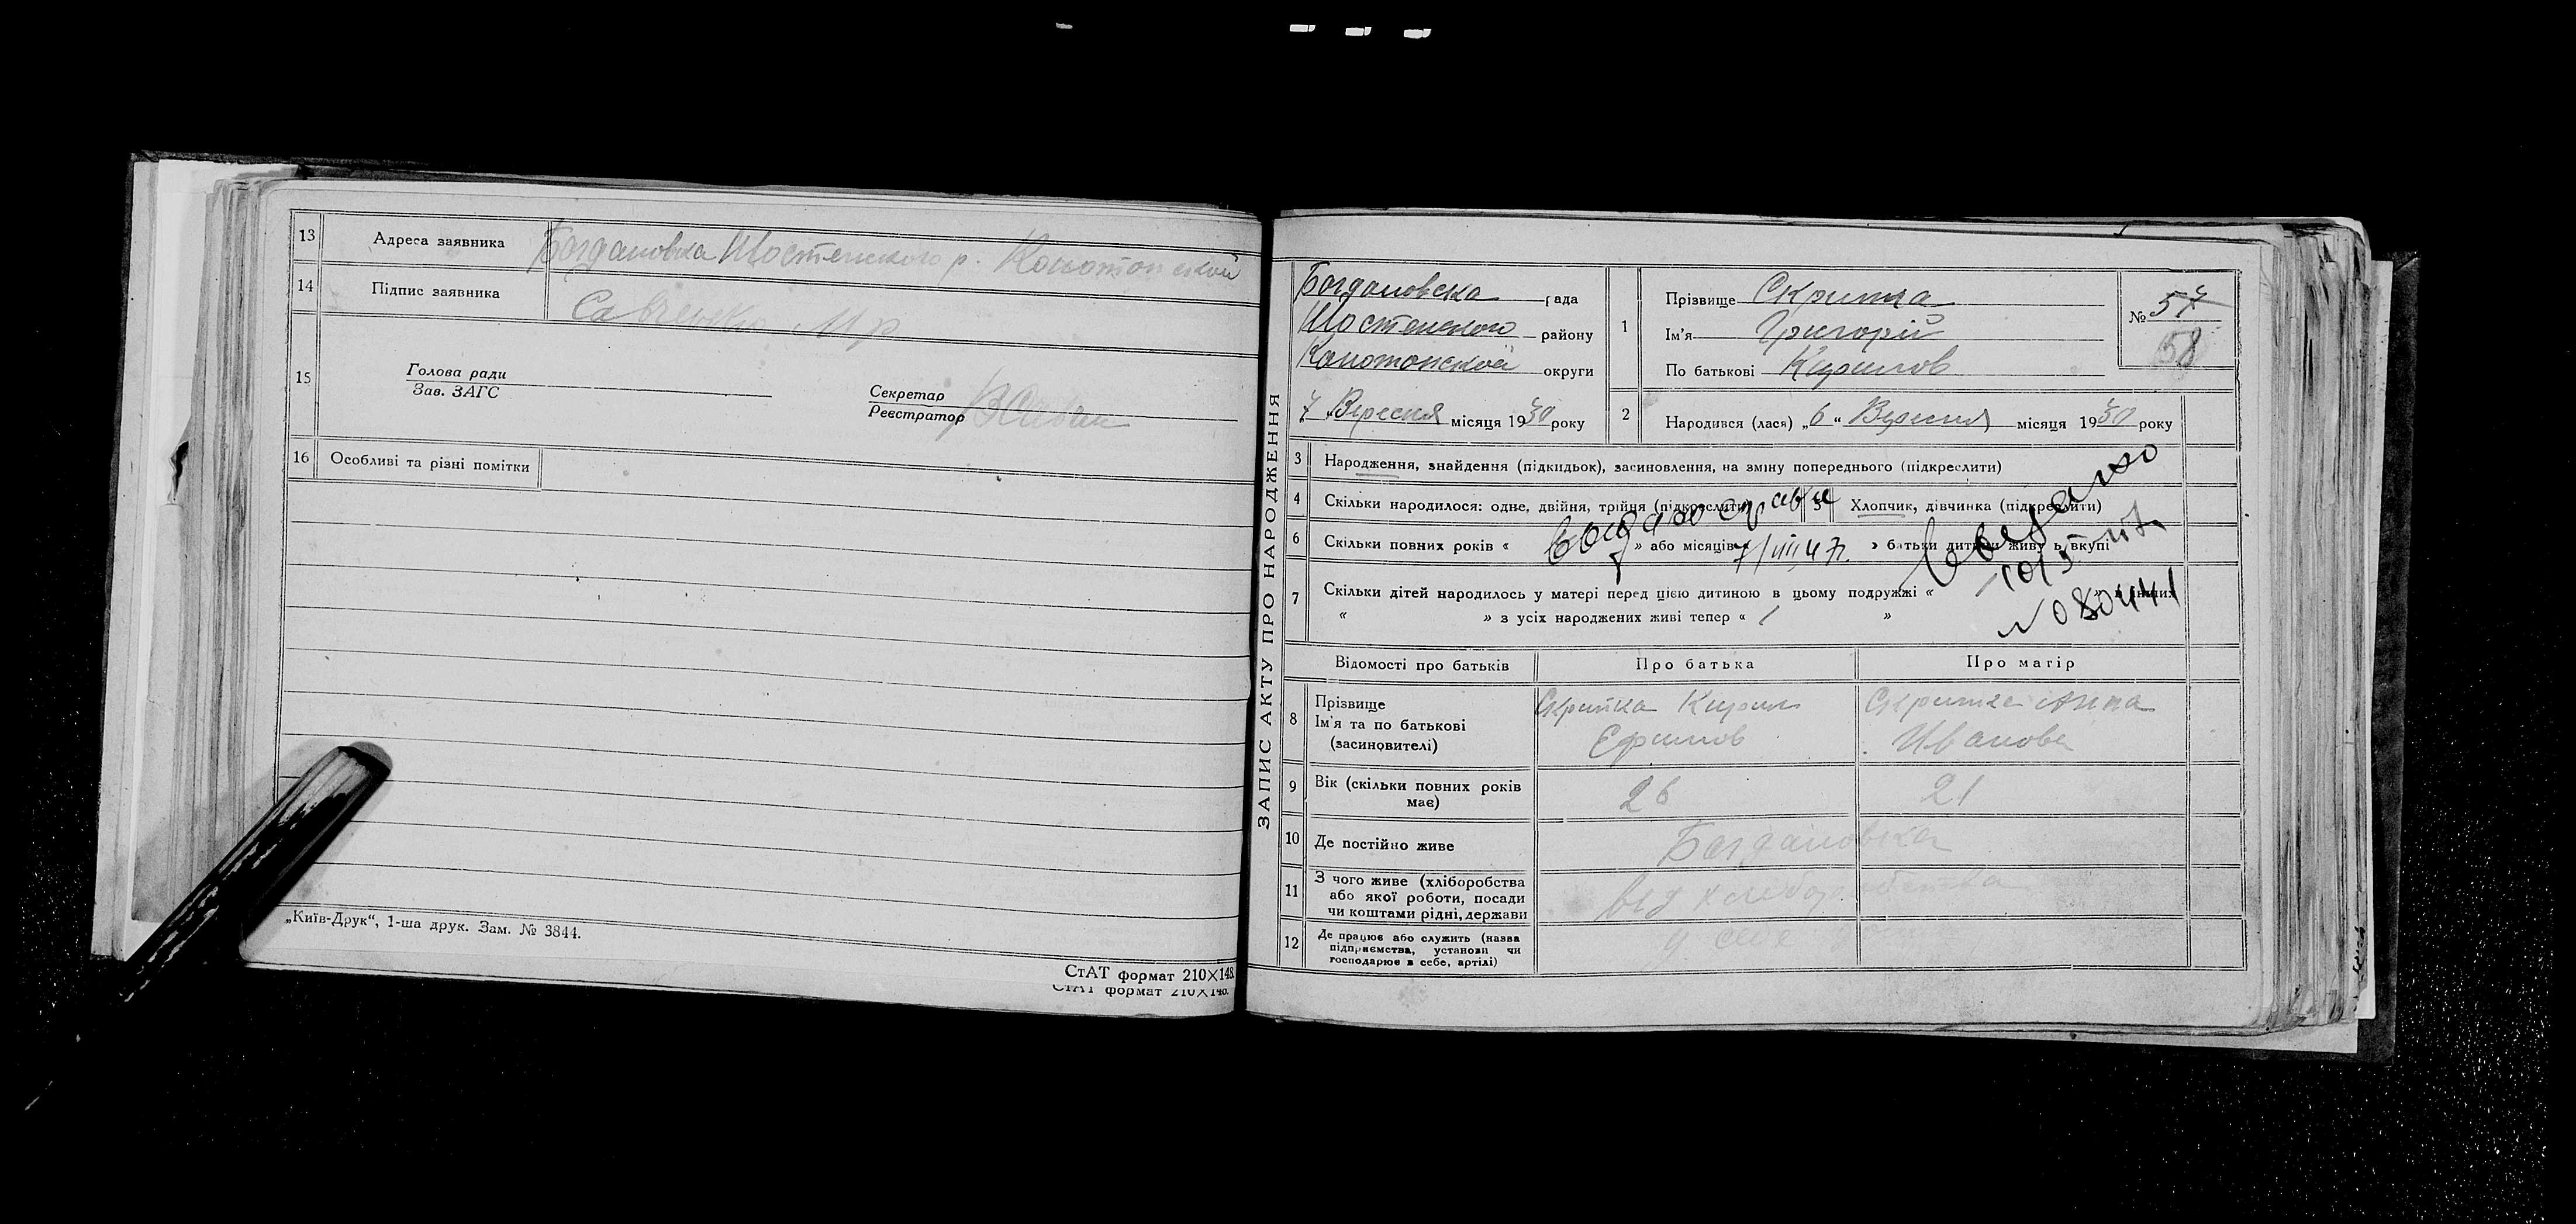 13 Адреса заявника Богдановка Шостенского р. Конотопской
14 Підпис заявника Савченко
15 Голова ради
Зав. ЗАГС
Секретар
Реєстратор
16 Особливі та різні помітки
„Київ-Друк“, 1-ша друк. Зам. № 3844.
СтАТ формат 210×148.
СтАТ формат 210×148.
ЗАПИС АКТУ ПРО НАРОДЖЕННЯ
Богдановска рада
Шостенского району
Конотопской округи
7 Вересня місяця 1930 року
1 Прізвище Скрипка
Ім'я Григорій
По батькові Кирилов
№ 57
58
2 Народився (лася) „6“ Вересня місяця 1930 року
3 Народження, знайдення (підкидьок), засиновлення, на зміну попереднього (підкреслити)
4 Скільки народилося: одне, двійня, трійня (підкреслити)
5 Хлопчик, дівчинка (підкреслити)
6 Скільки повних років « » або місяців « » батьки дитини живуть вкупі
7/VIII 47 г.
№ 080441
7 Скільки дітей народилось у матері перед цією дитиною в цьому подружжі « » в інших
« » з усіх народжених живі тепер « 1 »
Відомості про батьків Про батька Про матір
8 Прізвище
Ім'я та по батькові
(засиновителі)
Скрипка Кирил
Ефимов
Скрипка Анна
Иванова
9 Вік (скільки повних років має) 26 21
10 Де постійно живе Богдановка
11 З чого живе (хліборобства
або якої роботи, посади
чи коштами рідні, держави
12 Де працює або служить (назва
підприємства, установи чи
господарює в себе, артілі)